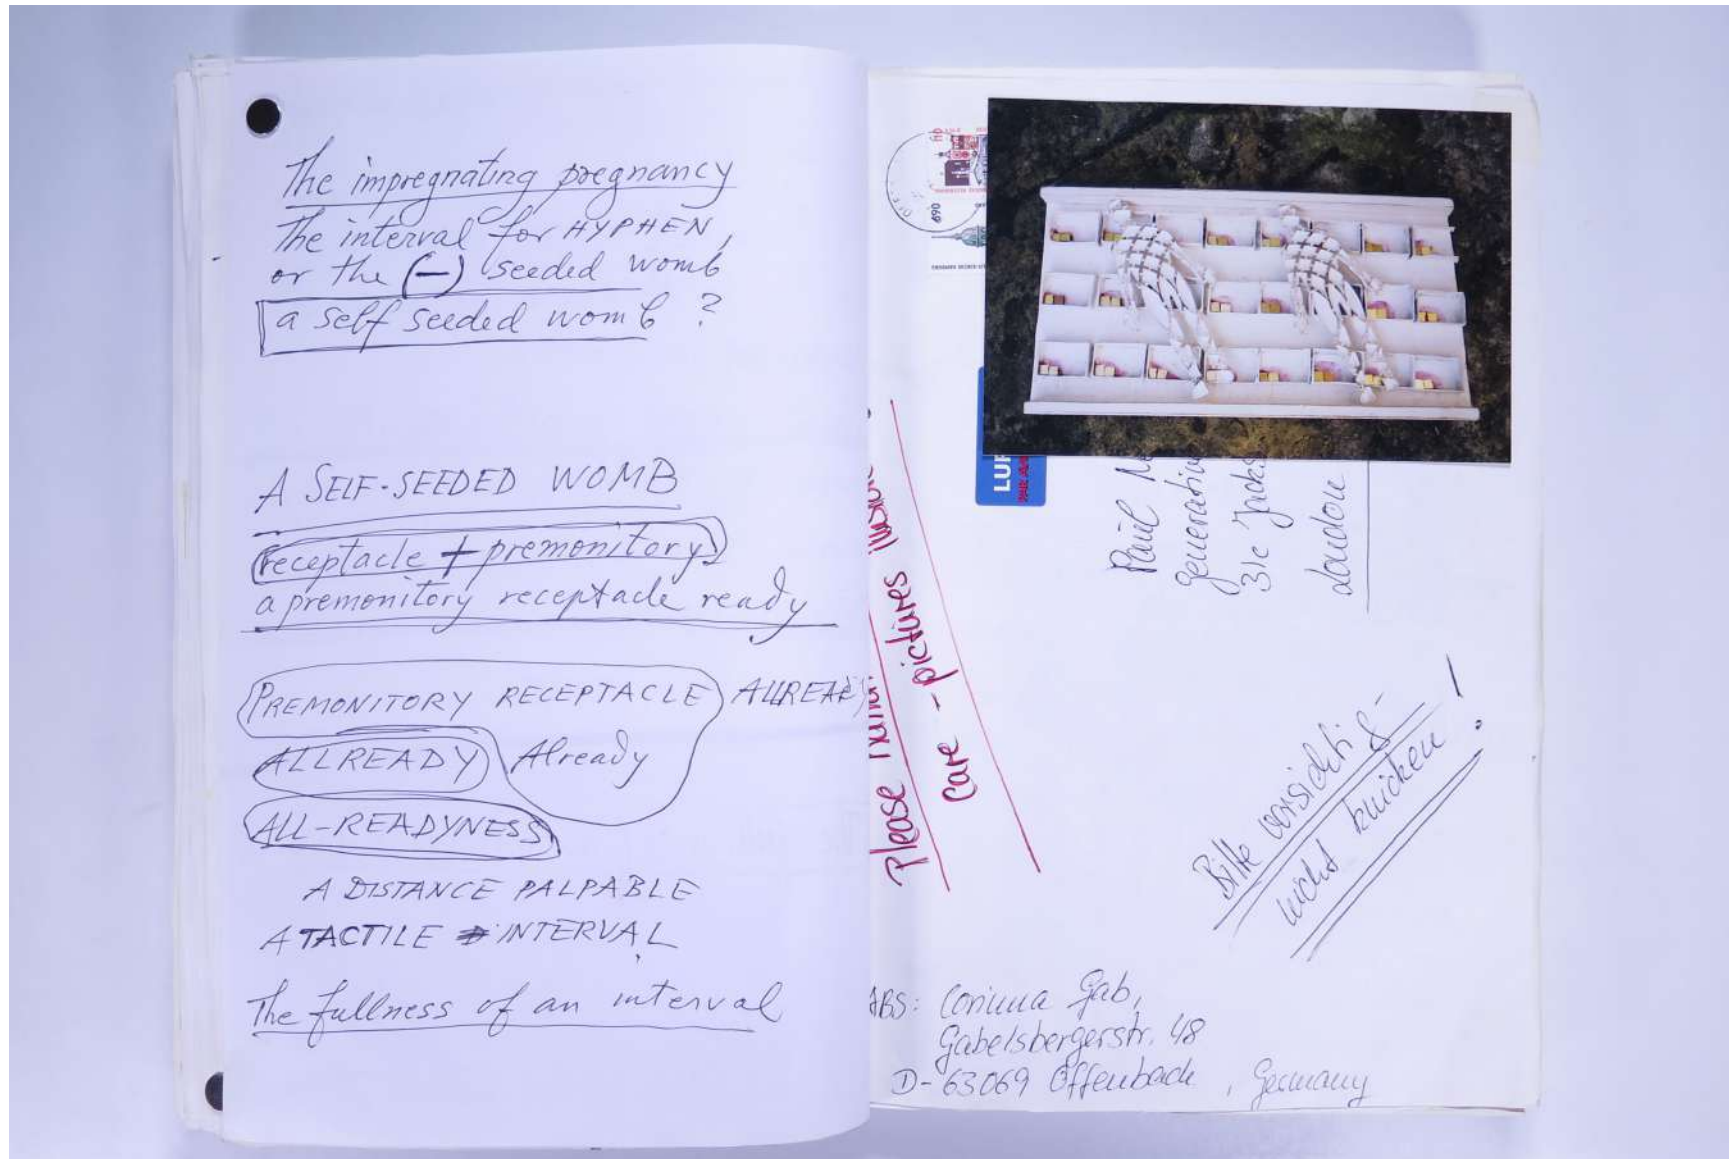 The impregnating pregnancy
The interval for HYPHEN,
or the (-) seeded womb
a self seeded womb ?
A SELF-SEEDED WOMB
receptacle + premonitory
a premonitory receptacle ready
PREMONITORY RECEPTACLE ALLREADY
ALLREADY Already
ALL-READYNESS
A DISTANCE PALPABLE
A TACTILE INTERVAL
The fullness of an interval
110
690
LUF
PAR AV
Paul
Generativ
31c Jacks
London
Please
Care - pictures inside
Bitte vorsichtig -
nicht knicken !
ABS: Corinna Gab,
Gabelsbergerstr. 48
D-63069 Offenbach, Germany